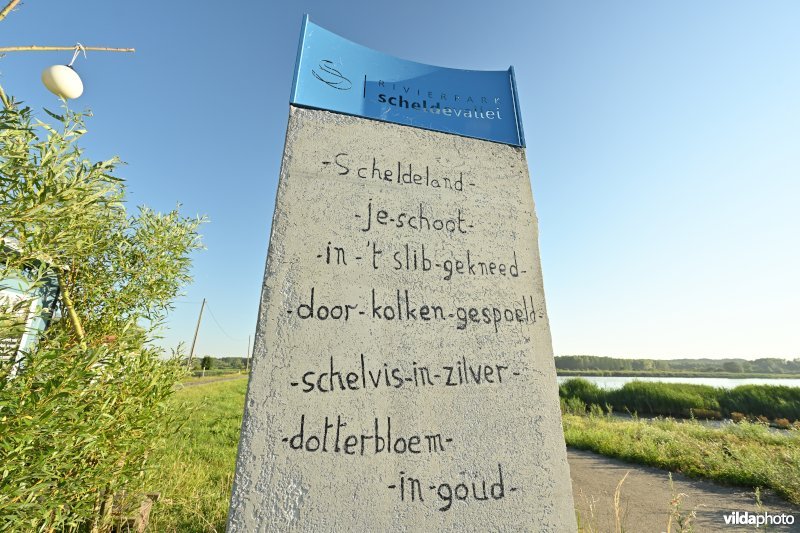 RIVIERPARK
scheldevallei
-Scheldeland-
-je-schoot-
-in-'t slib-gekneed-
-door-kolken-gespoeld-
-schelvis-in-zilver-
-dotterbloem-
-in-goud-
vildaphoto